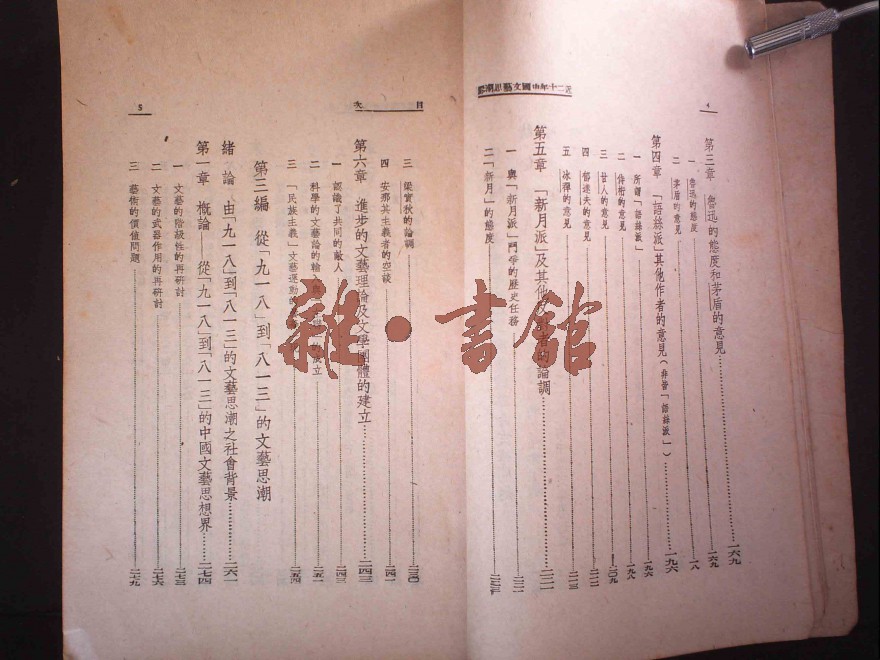 近二十年中國文藝思潮論
4
第三章 魯迅的態度和茅盾的意見……一六九
一 魯迅的態度……一六九
二 茅盾的意見……一八
第四章 「語絲派」其他作者的意見（非皆「語絲派」）……一九六
一 所謂「語絲派」……一九六
二 侍桁的意見……一九八
三 甘人的意見……二〇九
四 郁達夫的意見……二一二
五 冰禪的意見……二一三
第五章 「新月派」及其他反動者的論調……二二二
一 與「新月派」鬥爭的歷史任務……二二二
二 「新月」的態度
目次
5
三 梁實秋的論調……二三〇
四 安那其主義者的空談……二四一
第六章 進步的文藝理論及文學團體的建立……二四三
一 認識了共同的敵人……二四三
二 科學的文藝論的輸入立……二五一
三 「民族主義」文藝運動的……二五四
第三編 從「九一八」到「八一三」的文藝思潮
緒論 由「九一八」到「八一三」的文藝思潮之社會背景……二六一
第一章 概論——從「九一八」到「八一三」的中國文藝思想界……二七四
一 文藝的階級性的再研討……二七三
二 文藝的武器作用的再研討……二七六
三 藝術的價值問題……二七九
雜·書館